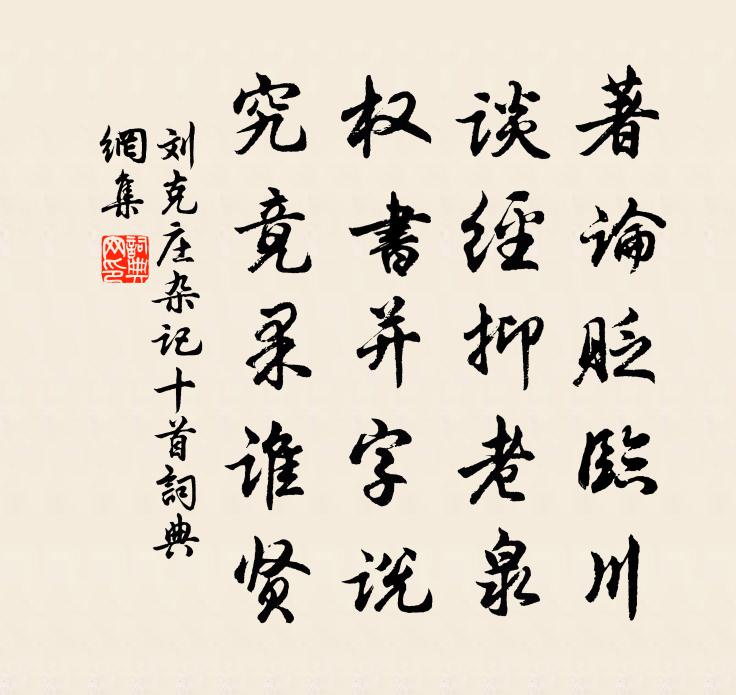 著論貶臨川
谈經抑老泉
权書并字説
究竟果谁贤
刘克庄杂记十首詞典
網集
詞典
网印